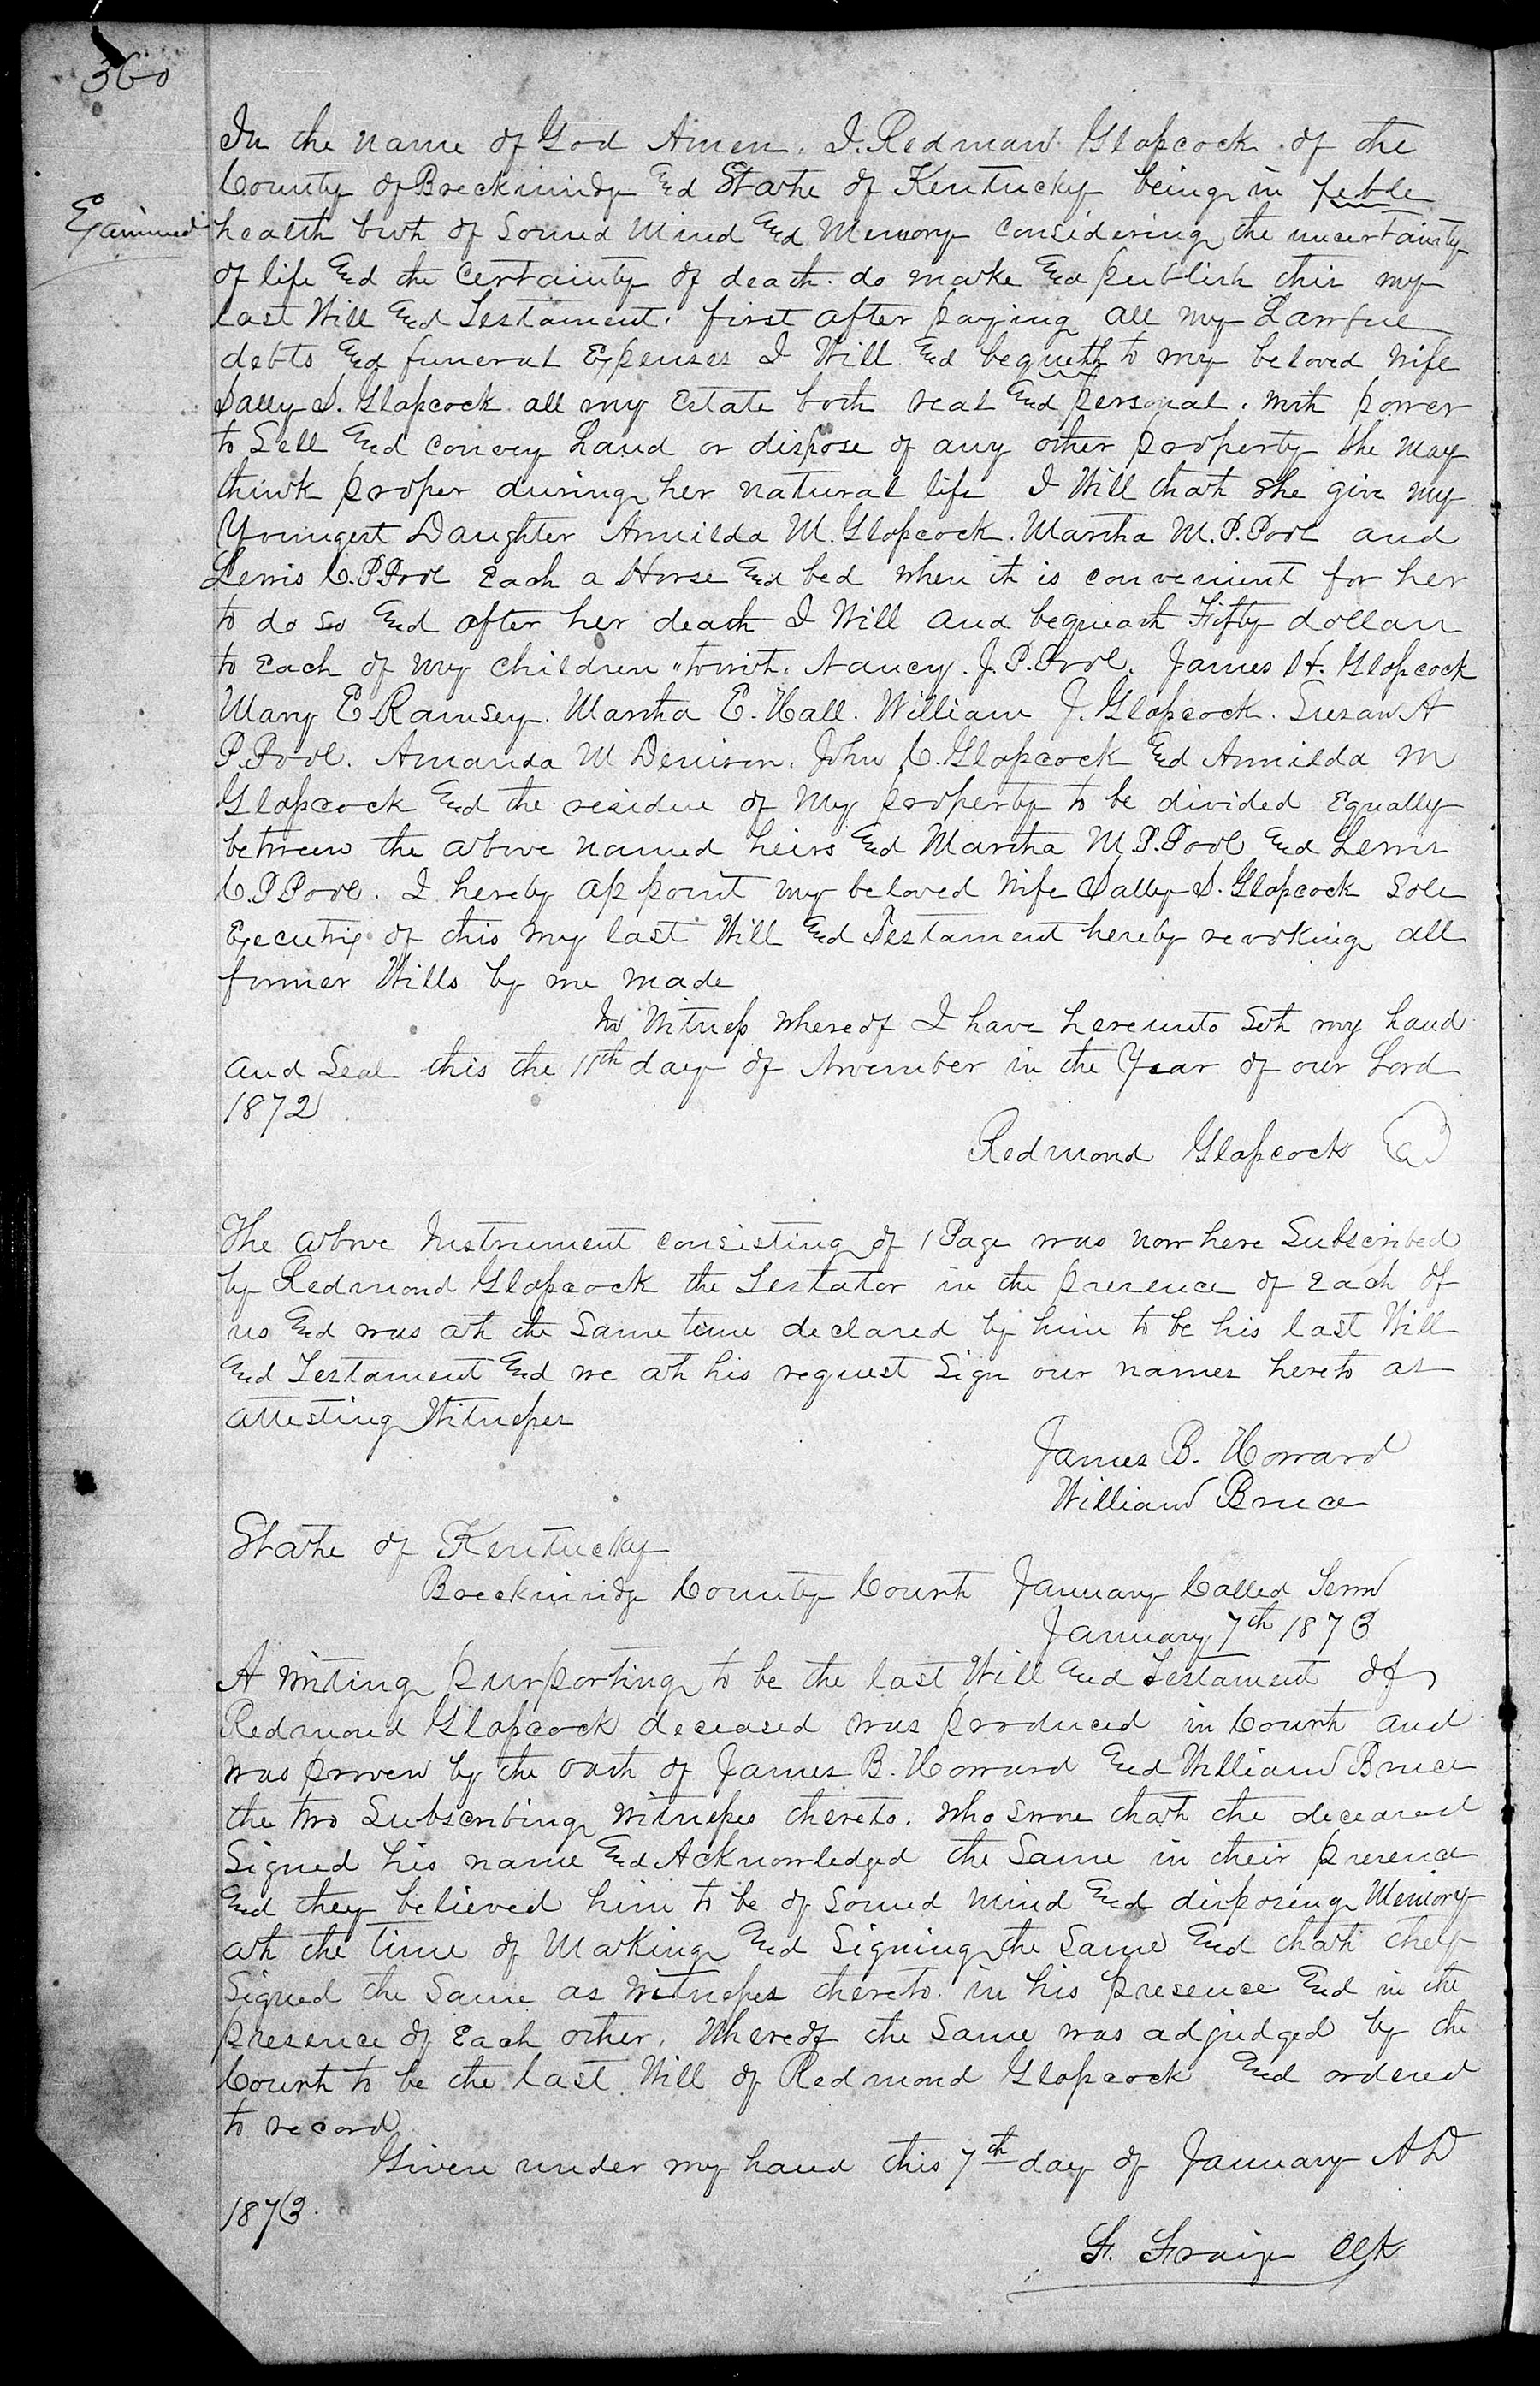 360
In the name of God Amen. I. Redman Glasscock of the
County of Breckinridge and State of Kentucky being in feble
Examined
health but of Sound Mind and Memory considering the uncertainty
of life and the Certainty of death. do make and publish this my
last Will and Testament. first after paying all my Lawful
debts and funeral Expenses I Will and bequeth to my beloved Wife
Sally S. Glasscock all my Estate both real and personal. with power
to Sell and convey Land or dispose of any other property She may
think proper during her natural life I Will that she give my
Youngest Daughter Armilda M. Glasscock. Martha M. P. Pool and
Lewis C. P Pool Each a Horse and bed when it is convenient for her
to do so and after her death I Will and bequeath Fifty dollars
to Each of my children "towit. Nancy. J. P. Pool. James H. Glasscock
Mary E Ramsey. Martha E. Hall. William J. Glasscock. Susan A
P. Pool. Amanda M Denison. John C. Glasscock and Armilda M
Glasscock and the residue of my property to be divided Equally
between the above named heirs and Martha M P. Pool and Lewis
C. P Pool. I hereby appoint my beloved Wife Sally S. Glasscock Sole
Executrix of this my last Will and Testament hereby revoking all
former Wills by me made
In Witness whereof I have hereunto Set my hand
and Seal this the 11th day of November in the Year of our Lord
1872
Redmond Glasscock
The above Instrument consisting of 1 Page was now here Subscribed
by Redmond Glasscock the Testator in the presence of each of
us and was at the Same time declared by him to be his last Will
and Testament and we at his request Sign our names hereto as
attesting Witnesses
James B. Howard
William Bruce
State of Kentucky
Breckinridge County Court January Called Term
January 7th 1873
A writing purporting to be the last Will and Testament of
Redmond Glasscock deceased was produced in Court and
was proven by the oath of James B. Howard and William Bruce
the two Subscribing witnesses thereto. who swore that the deceased
Signed his name and Acknowledged the Same in their presence
and they believed him to be of Sound mind and disposing Memory
at the time of Making and Signing the Same and that they
Signed the Same as witnesses thereto in his presence and in the
presence of Each other. Whereof the Same was adjudged by the
Court to be the last Will of Redmond Glasscock and ordered
to record
Given under my hand this 7th day of January A D
1873.
Clk